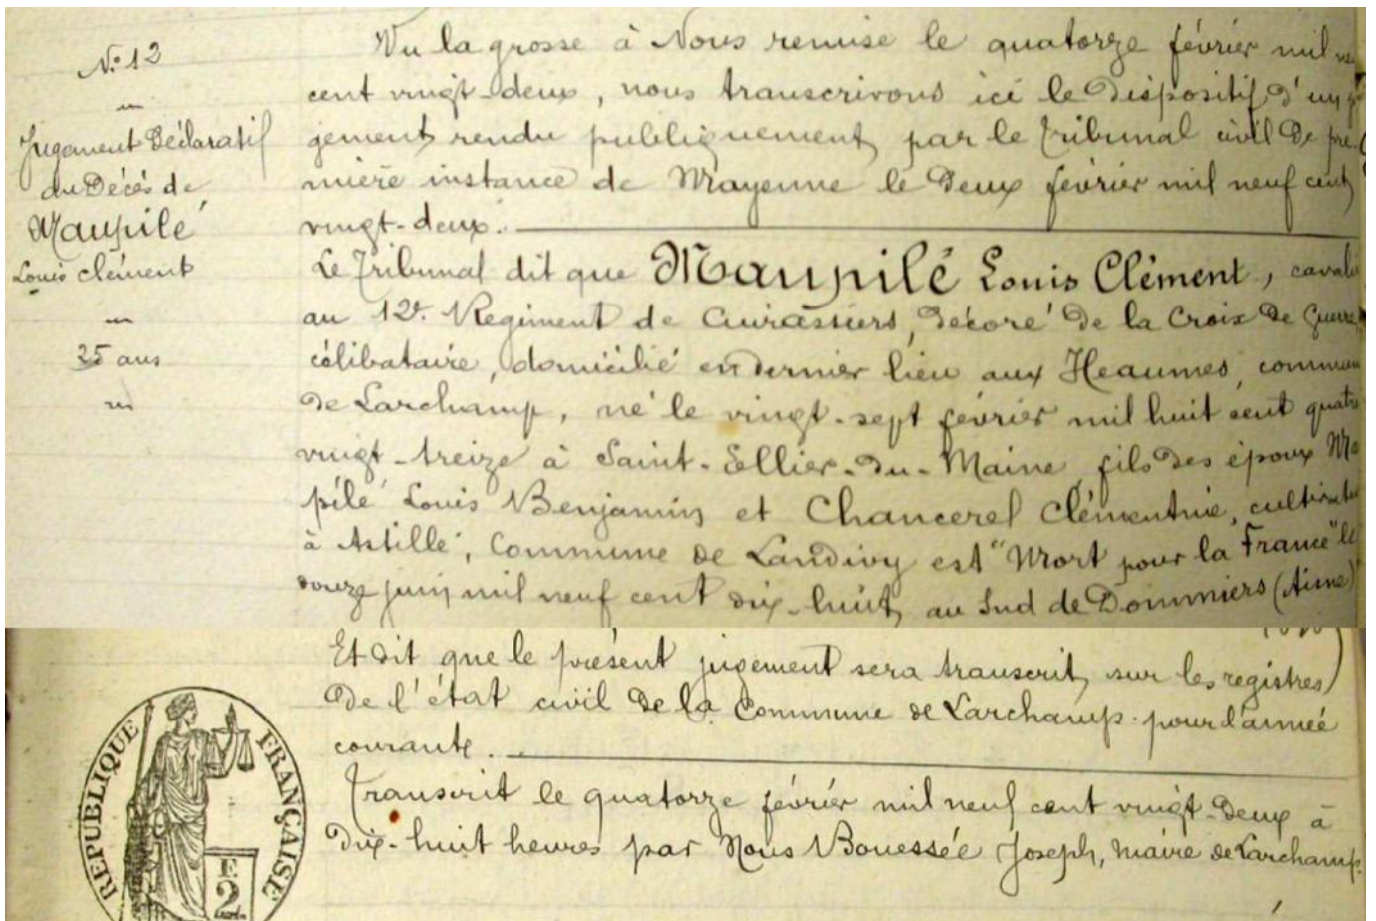 N° 12
Jugement Déclaratif
du Décès de
Maupilé
Louis Clément
25 ans
Vu la grosse à Nous remise le quatorze février mil
cent vingt-deux, nous transcrivons ici le dispositif d'un
gement rendu publiquement par le Tribunal civil de pre-
mière instance de Mayenne le deux février mil neuf cent
vingt-deux.
Le Tribunal dit que Maupilé Louis Clément, cavalie
au 12e Régiment de Cuirassiers, décoré de la Croix de Guerre
célibataire, domicilié en dernier lieu aux Heaumes, commune
de Larchamp, né le vingt-sept février mil huit cent quatre
vingt-treize à Saint-Ellier-du-Maine, fils des époux Ma
pilé Louis Benjamin et Chancerel Clémentine, cultivate
à Astillé, Commune de Landivy est "Mort pour la France" le
douze juin mil neuf cent dix-huit au Sud de Dommiers (Aisne)
Et dit que le présent jugement sera transcrit sur les registres
de l'état civil de la Commune de Larchamp pour l'année
courante.
Transcrit le quatorze février mil neuf cent vingt-deux à
dix-huit heures par Nous Bouessée Joseph, maire de Larchamp.
RÉPUBLIQUE FRANÇAISE
E
2